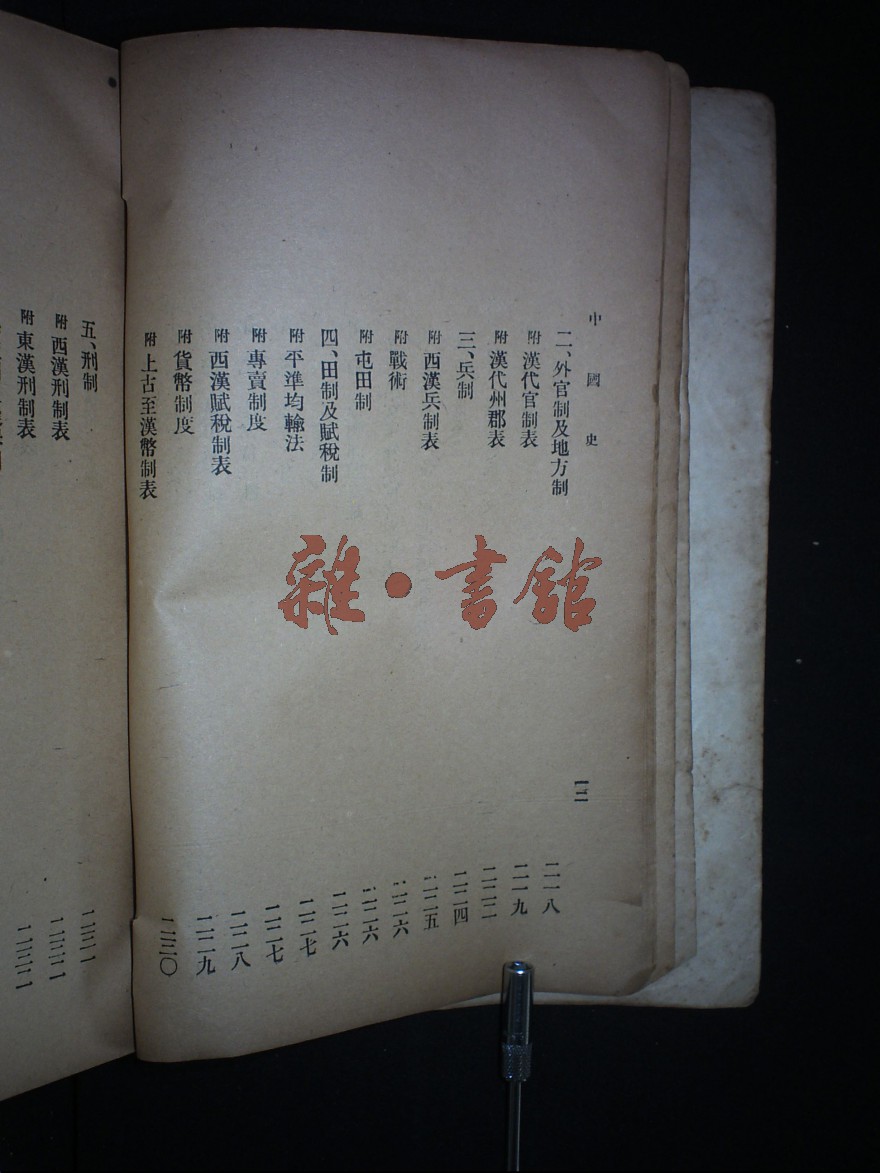 中國史
一二
二、外官制及地方制 二一八
附 漢代官制表 二一九
附 漢代州郡表
三、兵制 二二四
附 西漢兵制表 二二五
附 戰術 二二六
附 屯田制 二二六
四、田制及賦稅制 二二六
附 平準均輸法 二二七
附 專賣制度 二二七
附 西漢賦稅制表 二二八
附 貨幣制度 二二九
附 上古至漢幣制表 二三〇
五、刑制 二三一
附 西漢刑制表
附 東漢刑制表
雜·書館